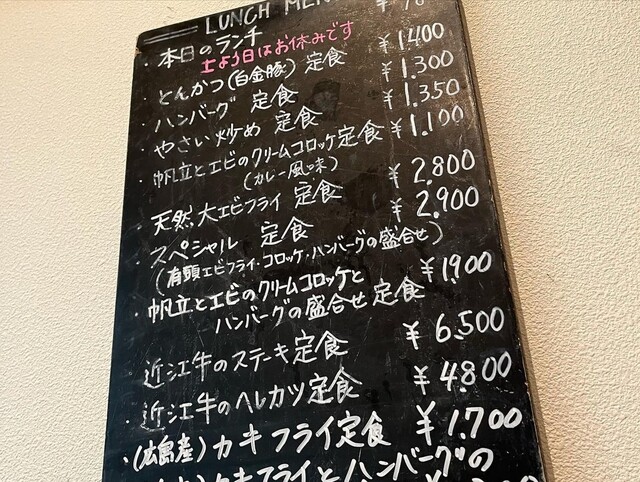 LUNCH MEN
・本日のランチ
土よう日はお休みです
・とんかつ(白金豚)定食 ¥1.400
・ハンバーグ 定食 ¥1.300
・やさい炒め 定食 ¥1.350
・帆立とエビのクリームコロッケ定食 ¥1.100
(カレー風味)
・天然大エビフライ 定食 ¥2.800
・スペシャル 定食 ¥2.900
(有頭エビフライ・コロッケ・ハンバーグの盛合せ)
・帆立とエビのクリームコロッケと ¥1900
ハンバーグの盛合せ定食
・近江牛のステーキ定食 ¥6.500
・近江牛のヘレカツ定食 ¥4.800
・(広島産)カキフライ定食 ¥1.700
カキフライとハンバーグの